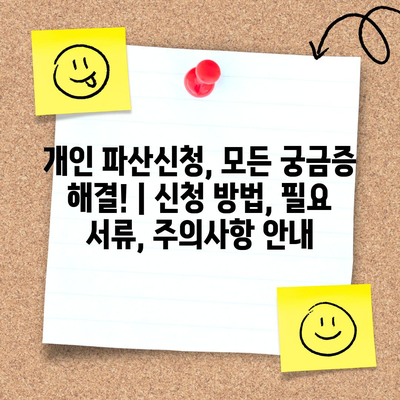 개인 파산신청, 모든 궁금증
해결! | 신청 방법, 필요
서류, 주의사항 안내